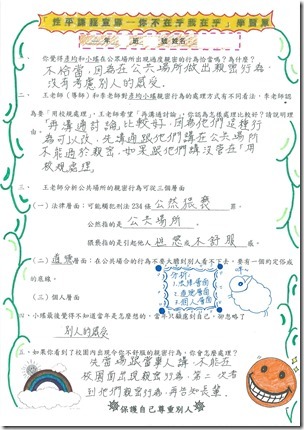 「性平課程宣導－你不在乎我在乎」學習單
年 班 號 姓名
一、你覺得彥均和小瑀在公眾場所出現過度親密的行為恰當嗎？為什麼？
不恰當，因為在公共場所做出親密行為，
沒有考慮別人的感受。
二、王老師（導師）和李老師對彥均小瑀親密行為的處理方式有不同看法，李老師認
為要「用校規處理」，王老師希望「再溝通討論」，你認為怎樣處理比較好？請說明理
由。再溝通討論，比較好，因為他們這種行
為可以改，先溝通跟他們講在公共場所
不能過於親密，如果跟他們講沒管在用
校規處理。
三、王老師分析公共場所的親密行為可就三個層面
（一）法律層面：可能觸犯刑法 234 條 公然猥褻 罪。
公然指的是 公共場所 。
猥褻指的是引起他人 或不舒服 感。
（二）道德層面：在公分場所的行為不要太離別人看不下去，要有一個約定俗成
的底線。
（三）個人層面
分析：
1.法律層面
2.道德層面
3.個人層面
四、小瑀最後覺得不知道當年是怎麼想的，當年只顧慮到自己，卻忽略了
別人的感受
五、如果你看到了校園內出現令你不舒服的親密行為，你會怎麼處理？
先當場跟當事人講，不能在
校園面出現親密行為，第二次看
到他們親密行為，再告知長輩。
保護自己尊重別人